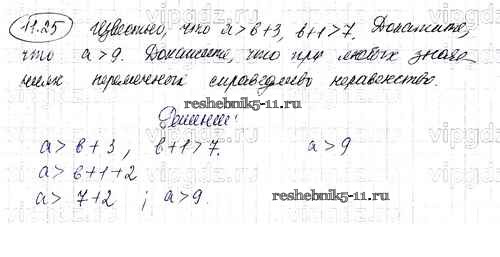 11.25 Известно, что a > b+3, b+1 > 7. Докажите,
что a > 9. Докажите, что при любых значе-
ниях переменных справедливо неравенство.
reshebnik5-11.ru
Решение:
a > b+3, b+1 > 7. a > 9
a > b+1+2
a > 7+2 ; a > 9.
reshebnik5-11.ru